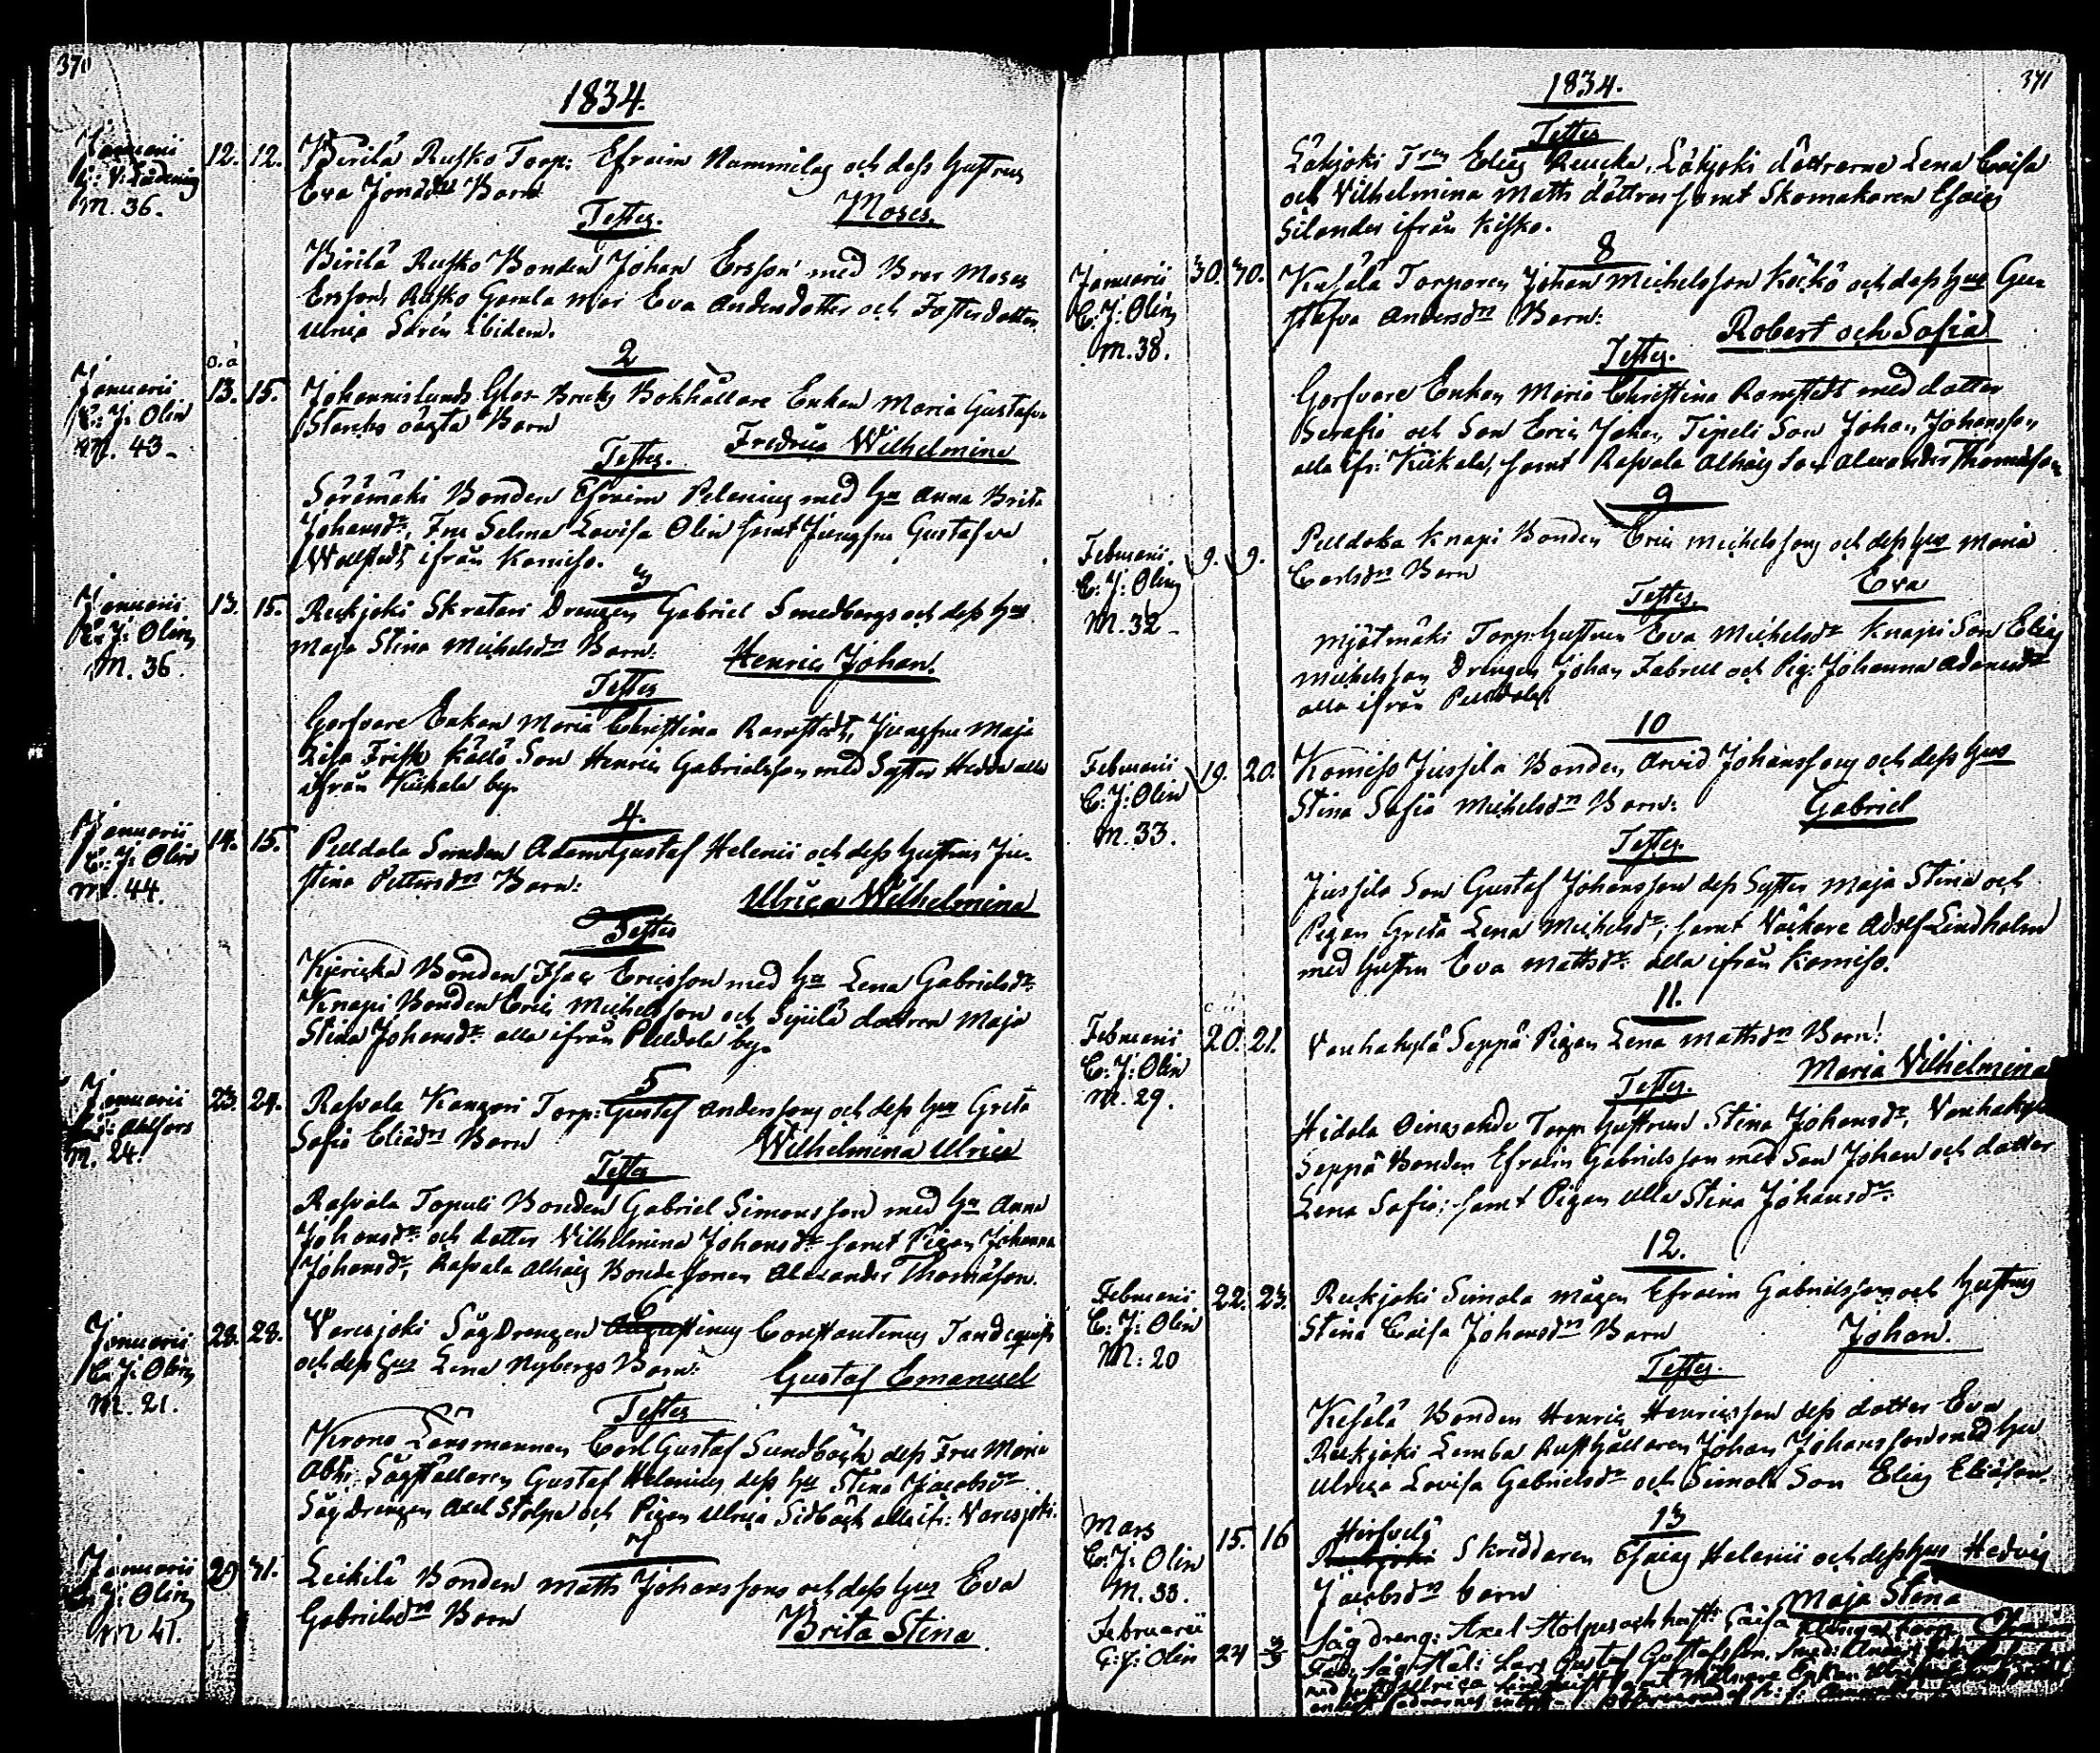 370
1834.
Januarii 12. 12. Virilä Rusko Torp: Efraim Nammilag och dess hustrus
M. 36. Eva Jonæ dr Barn
Testes. Moses.
Virilä Rusko Bonden Johan Ersson med Bror Moses
Ersson, Rusko Gamla Mor Eva Andersdotter och Fosterdotter
Ulrica Ibidem.
2
o. ä
Januarii 13. 15. Johannislunds Glas Bruks Bokhållare Enkan Maria Gustafva
C: J: Olin oägta Barn
M. 43. Testes. Fredrica Wilhelmina
Sörämäki Bonden Efraim Pelenius med hu Anna Brita
Johansdr, Fru Selma Lovisa Olin samt Jungfru Gustafva
Wallstedt ifrån Komiso.
3
Januarii 13. 15. Reekjoki Skratari Drengen Gabriel Smedbergs och dess hus
C: J: Olin Maja Stina Michelsdrs Barn:
M. 36. Henric Johan.
Testes
Garfvare Enkan Maria Christina Ramstedt, Jungfru Maja
Lisa Frisk Källä Son Henric Gabrielsson med Syster Hedda alla
ifrån Kiikala by.
4.
Januarii 14. 15. Pelldala Smeden Adam Gustaf Helenii och dess hustrus Ju-
C: J: Olin stina Pettersdrs Barn:
M. 44. Ulrica Wilhelmina
Testes
Bonden Isac Ericsson med hu Lena Gabrielsdr
Knapi Bonden Eric Michelsson och dottren Maja
Stina Johansdr alla ifrån Pelldala by.
5
Januarii 23. 24. Rasvala Kangari Torp: Gustaf Anderssons och dess hus Greta
Ahlfors Sofia Eliædrs Barn
M. 24. Wilhelmina Ulrica
Testes
Rasvala Topuli Bonden Gabriel Simonsson med hu Anna
Johansdr och dotter Vilhelmina Johansdr samt Pigan Johanna
Johansdr, Rasvala Alhais Bonde sonen Alexander Thomasson.
6
Januarii 28. 28. Varesjoki Sågdrengen Constantinus
C: J: Olin och dess hus Lena Nybergs Barn:
M. 21. Gustaf Emanuel
Testes
Krono Länsmannen Carl Gustaf Sundbäck dess Fru Maria
Sågställaren Gustaf Helenius dess hu Stina Jacobsdr
Sågdrengen Axel Stolpe och Pigan Ulrica Sidbäck alla ifr: Varesjoki.
7
Januarii 29 31. Leikilä Bonden Matts Johanssons och dess hus Eva
C: J: Olin Gabrielsdrs Barn
M 41. Brita Stina
371
1834.
Testes
Lähjoki dottrarne Lena Caisa
och Vilhelmina Matts döttrar samt Skomakaren Esaias
Silander ifrån Kisko.
8
Januarii 30. 30. Kesälä Torparen Johan Michelsson Köckö och dess hus Gu-
C: J: Olin stafva Andersdrs Barn:
M. 38. Robert och Sofia
Testes.
Garfvare Enkan Maria Christina Ramstedt med dotter
Serafia och Son Eric Johan, Tipeli Son Johan Johansson
alla ifr: Kiikala, samt Rasvala Alhais Son Alexander Thomasson
9
Februarii 9. 9. Pelldala Knapi Bonden Eric Michelssons och dess hus Maria
C: J: Olin Carlsdrs Barn
M. 32 Eva
Testes.
Torp: hustrun Eva Michelsdr Knapi Son Elias
Michelsson Drengen Johan Fabrell och Pig: Johanna Adamsdr
alla ifrån Pelldala
10
Februarii 19. 20. Komiso Jussila Bonden Arvid Johanssons och dess hus
C: J: Olin Stina Sofia Michelsdrs Barn:
M. 33. Gabriel
Testes.
Jussila Son Gustaf Johansson dess Syster Maja Stina och
Pigan Greta Lena Michelsdr; samt Väckare Adolf Lindholm
med hustru Eva Mattsdr alla ifrån Komiso.
11.
Februarii 20. 21. Vanhakylä Seppä Pigan Lena Mattsdrs Barn!
C: J: Olin Maria Vilhelmina
M. 29. Testes.
Hidala Torp: hustrun Stina Johansdr, Vanhakylä
Seppä Bonden Efraim Gabrielsson med Son Johan och dotter
Lena Sofia; samt Pigan Ulla Stina Johansdr
12.
Februarii 22. 23. Reekjoki Simola mågen Efraim Gabrielssons och hustrus
C: J: Olin Stina Caisa Johansdrs Barn
M: 20 Johan.
Testes.
Kesälä Bonden Henric Henricsson dess dotter Eva
Reekjoki Lemba Rusthållaren Johan Johansson med hu
Ulrica Lovisa Gabrielsdr och Simola Son Elias Eliæson.
13
Mars 15. 16 Hirsvelä Skräddaren Esaias Helenii och dess hus Hedvig
C: J: Olin Jacobsdrs barn
M. 33. Maja Stina
Februarii
C: J: Olin 24 3/3 Såg dreng: Axel Stolpes och hust: Caisa
Lars Gustaf Gustafsson